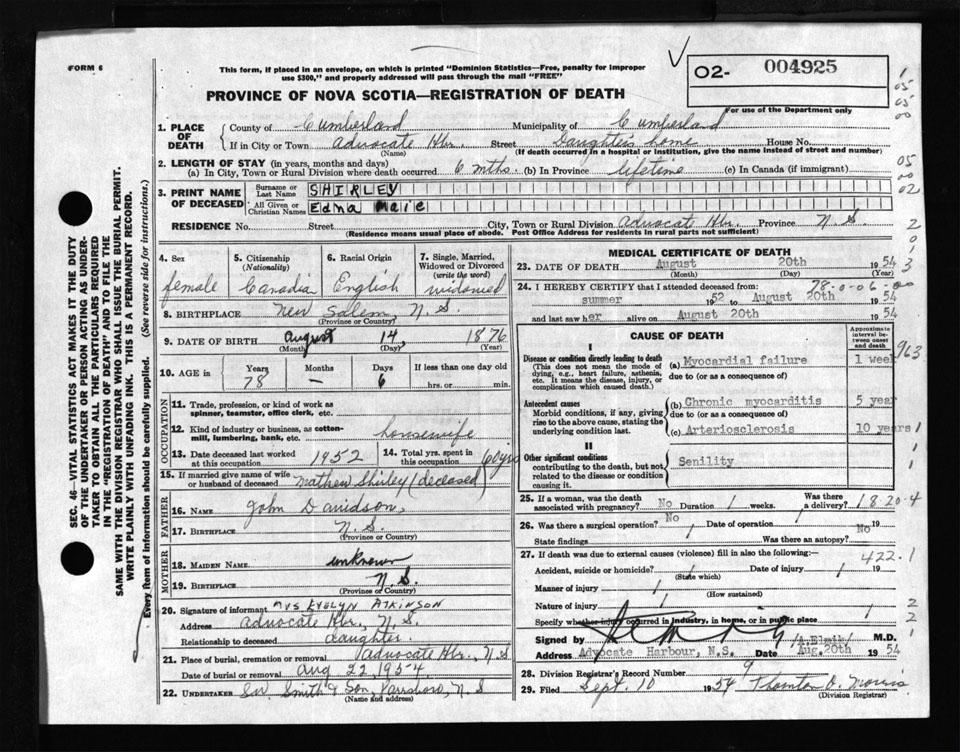 FORM 6
This form, if placed in an envelope, on which is printed "Dominion Statistics—Free, penalty for improper
use $300," and properly addressed will pass through the mail "FREE"
02- 004925
For use of the Department only
PROVINCE OF NOVA SCOTIA—REGISTRATION OF DEATH
1. PLACE OF DEATH { County of Cumberland Municipality of Cumberland
If in City or Town Advocate Hbr. Street Daughter's home House No.
(Name) (If death occurred in a hospital or institution, give the name instead of street and number)
2. LENGTH OF STAY (in years, months and days)
(a) In City, Town or Rural Division where death occurred 6 mths. (b) In Province lifetime (c) In Canada (if immigrant)
3. PRINT NAME OF DECEASED { Surname or Last Name SHIRLEY
All Given or Christian Names Edna Maie
RESIDENCE No. Street City, Town or Rural Division Advocate Hbr. Province N.S.
(Residence means usual place of abode. Post Office Address for residents in rural parts not sufficient)
4. Sex 5. Citizenship (Nationality) 6. Racial Origin 7. Single, Married, Widowed or Divorced (write the word)
female Canadian English widowed
8. BIRTHPLACE New Salem, N.S.
(Province or Country)
9. DATE OF BIRTH August 14, 1876
(Month) (Day) (Year)
10. AGE in Years Months Days If less than one day old
78 — 6 hrs. or min.
OCCUPATION
11. Trade, profession, or kind of work as
spinner, teamster, office clerk, etc.
12. Kind of industry or business, as cotton-
mill, lumbering, bank, etc. housewife
13. Date deceased last worked at this occupation 1952 14. Total yrs. spent in this occupation 60 yrs
15. If married give name of wife
or husband of deceased Mathew Shirley (deceased)
FATHER
16. NAME John Davidson,
17. BIRTHPLACE N.S.
(Province or Country)
MOTHER
18. MAIDEN NAME unknown
19. BIRTHPLACE N.S.
(Province or Country)
20. Signature of informant Mrs EVELYN ATKINSON
Address Advocate Hbr, N.S.
Relationship to deceased daughter
21. Place of burial, cremation or removal Advocate Hbr., N.S
Date of burial or removal Aug 22, 1954
22. UNDERTAKER Smith & Son, Parrsboro, N.S
(Name and address)
MEDICAL CERTIFICATE OF DEATH
23. DATE OF DEATH August 20th 1954
(Month) (Day) (Year)
78-0-06-00
24. I HEREBY CERTIFY that I attended deceased from:
summer 1952 to August 20th 1954
and last saw her alive on August 20th 1954
CAUSE OF DEATH
Approximate interval between onset and death
I
Disease or condition directly leading to death
(This does not mean the mode of dying, e.g., heart failure, asthenia, etc. It means the disease, injury, or complication which caused death.)
(a) Myocardial failure 1 week
due to (or as a consequence of)
963
Antecedent causes
Morbid conditions, if any, giving rise to the above cause, stating the underlying condition last.
(b) Chronic myocarditis 5 year
due to (or as a consequence of)
(c) Arteriosclerosis 10 years
II
Other significant conditions
contributing to the death, but not related to the disease or condition causing it
Senility
25. If a woman, was the death
associated with pregnancy? No Duration / weeks. Was there a delivery?
18-20-4
26. Was there a surgical operation? No Date of operation / 19
State findings Was there an autopsy? No
27. If death was due to external causes (violence) fill in also the following:—
422.1
Accident, suicide or homicide? / Date of injury / 19
(State which)
Manner of injury /
(How sustained)
Nature of injury /
Specify whether injury occurred in industry, in home, or in public place /
Signed by /A.Elmik/ M.D.
Address Advocate Harbour, N.S. Date Aug.20th 1954
28. Division Registrar's Record Number 9
29. Filed Sept. 10 1954 Thornton D. Morris
(Division Registrar)
SEC. 46—VITAL STATISTICS ACT MAKES IT THE DUTY
OF THE UNDERTAKER OR PERSON ACTING AS UNDER-
TAKER TO OBTAIN ALL THE PARTICULARS REQUIRED
IN THE "REGISTRATION OF DEATH" AND TO FILE THE
SAME WITH THE DIVISION REGISTRAR WHO SHALL ISSUE THE BURIAL PERMIT.
WRITE PLAINLY WITH UNFADING INK. THIS IS A PERMANENT RECORD.
Every item of information should be carefully supplied. (See reverse side for instructions.)